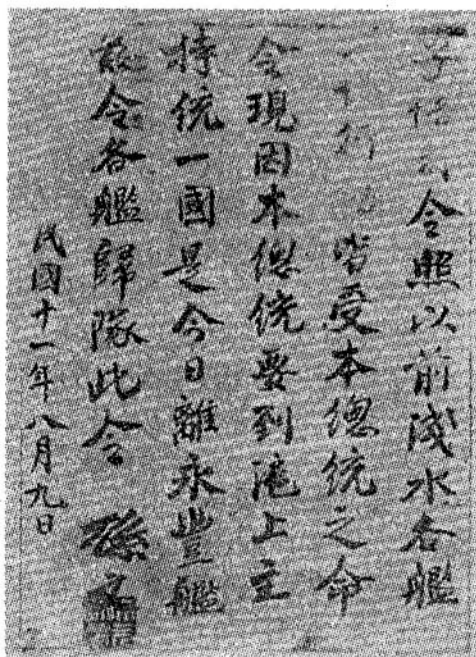 令照以前淺水各艦
皆受本總統之命
令現因本總統要到滬上主
持統一國是今日離永豐艦
茲令各艦歸隊此令 孫文
民國十一年八月九日